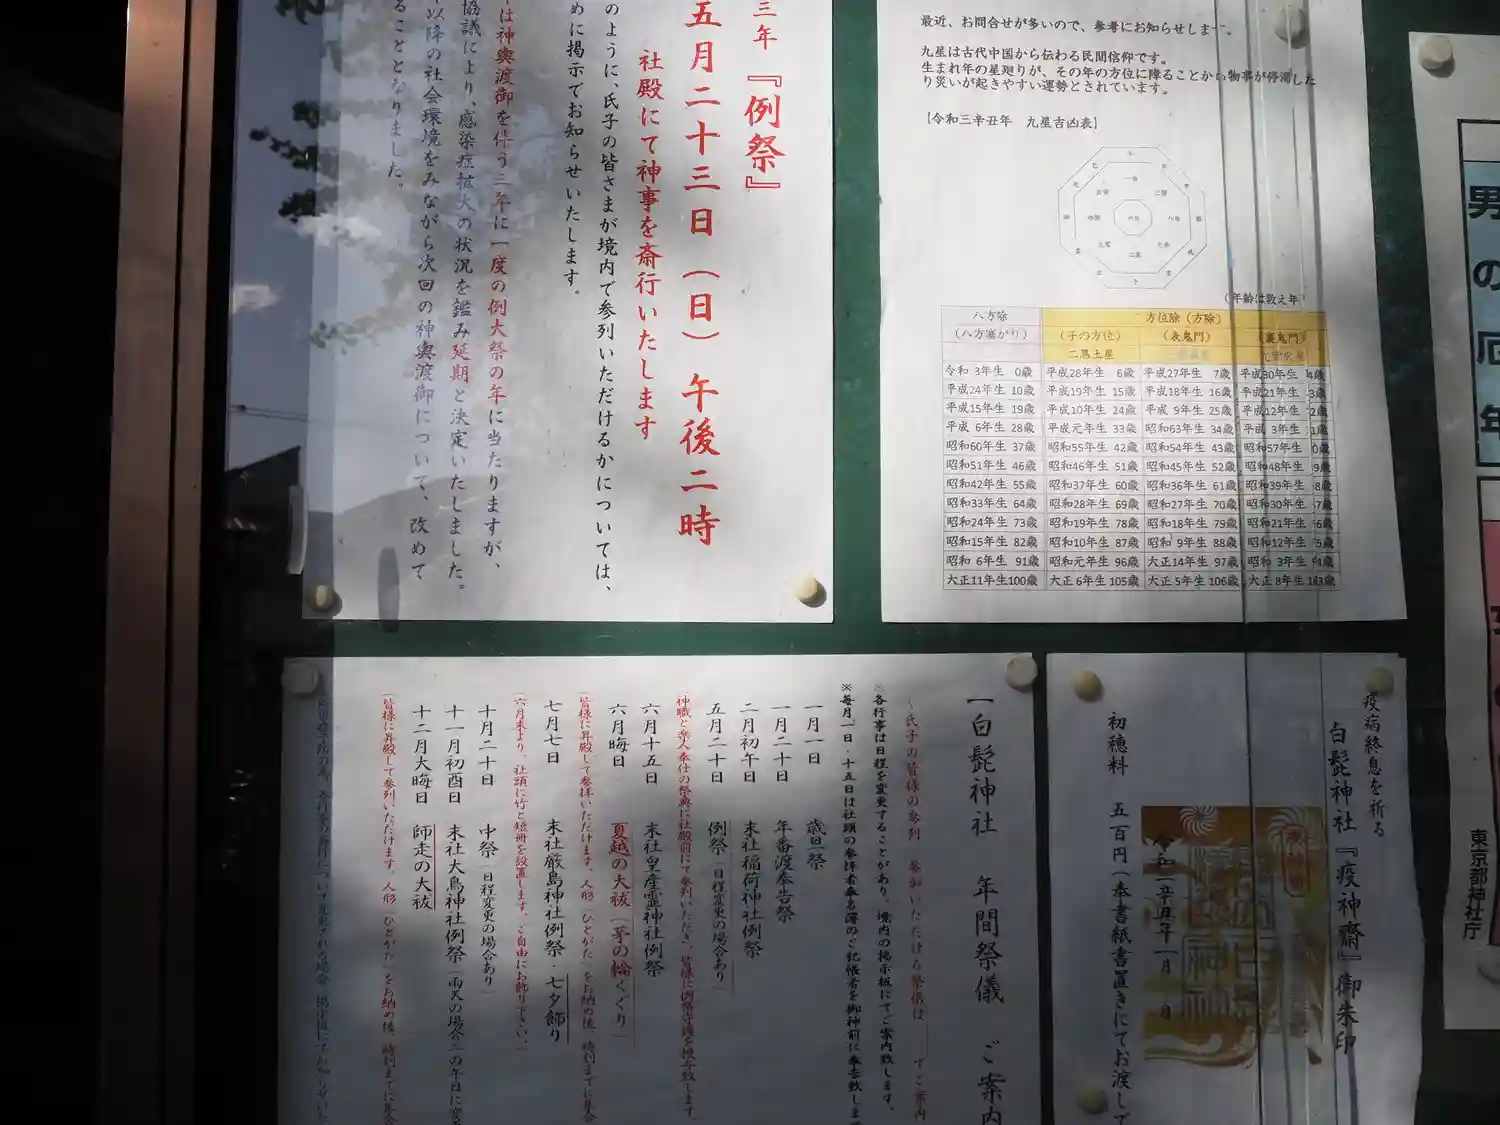 三年『例祭』
五月二十三日(日)午後二時
社殿にて神事を斎行いたします
のように、氏子の皆さまが境内で参列いただけるかについては、
めに掲示でお知らせいたします。
は神輿渡御を伴う三年に一度の例大祭の年に当たりますが、
協議により、感染症拡大の状況を鑑み延期と決定いたしました。
以降の社会環境をみながら次回の神輿渡御について、改めて
ることとなりました。
最近、お問合せが多いので、参考にお知らせします。
九星は古代中国から伝わる民間信仰です。
生まれ年の星廻りが、その年の方位に障ることから物事が停滞した
り災いが起きやすい運勢とされています。
【令和三辛丑年 九星吉凶表】
(年齢は数え年)
八方除 方位除(方除)
(八方塞がり) (子の方位) (表鬼門) (裏鬼門)
二黒土星 九紫火星
令和 3年生 0歳 平成28年生 6歳 平成27年生 7歳 平成30年生 4歳
平成24年生 10歳 平成19年生 15歳 平成18年生 16歳 平成21年生 3歳
平成15年生 19歳 平成10年生 24歳 平成 9年生 25歳 平成12年生 2歳
平成 6年生 28歳 平成元年生 33歳 昭和63年生 34歳 平成 3年生 1歳
昭和60年生 37歳 昭和55年生 42歳 昭和54年生 43歳 昭和57年生 0歳
昭和51年生 46歳 昭和46年生 51歳 昭和45年生 52歳 昭和48年生 9歳
昭和42年生 55歳 昭和37年生 60歳 昭和36年生 61歳 昭和39年生 8歳
昭和33年生 64歳 昭和28年生 69歳 昭和27年生 70歳 昭和30年生 7歳
昭和24年生 73歳 昭和19年生 78歳 昭和18年生 79歳 昭和21年生 6歳
昭和15年生 82歳 昭和10年生 87歳 昭和 9年生 88歳 昭和12年生 5歳
昭和 6年生 91歳 昭和元年生 96歳 大正14年生 97歳 昭和 3年生 94歳
大正11年生100歳 大正 6年生 105歳 大正 5年生 106歳 大正 8年生 103歳
男の厄年
東京都神社庁
【白髭神社 年間祭儀 ご案内
~氏子の皆様の参列、参加いただける祭儀は でご案内
※各行事は日程を変更することがあり、境内の掲示板にてご案内致します。
※毎月一日・十五日は社頭の参拝者奉名簿のご記帳者を御神前に奉告致しま
一月一日 歳旦祭
一月二十日 年番渡奉告祭
二月初午日 末社稲荷神社例祭
五月二十日 例祭(日程変更の場合あり)
(神職と楽人奉仕の祭典に社殿前にて参列いただき、皆様に例祭守護を授与致します。
六月十五日 末社皇産霊神社例祭
六月晦日 夏越の大祓(茅の輪くぐり)
(皆様に昇殿して参拝いただけます。人形(ひとがた)をお納め後、時刻までに集合
七月七日 末社厳島神社例祭・七夕飾り
(六月末より、社頭に竹と短冊を設置します。ご自由にお飾り下さい。)
十月二十日 中祭(日程変更の場合あり)
十一月初酉日 末社大鳥神社例祭(雨天の場合二の午日に変
十二月大晦日 師走の大祓
(皆様に昇殿して参列いただけます。人形(ひとがた)をお納め後、時刻までに集合
疫病終息を祈る
白髭神社『疫神齋』御朱印
初穂料 五百円(奉書紙書置きにてお渡しで
令和三辛丑年 月 日